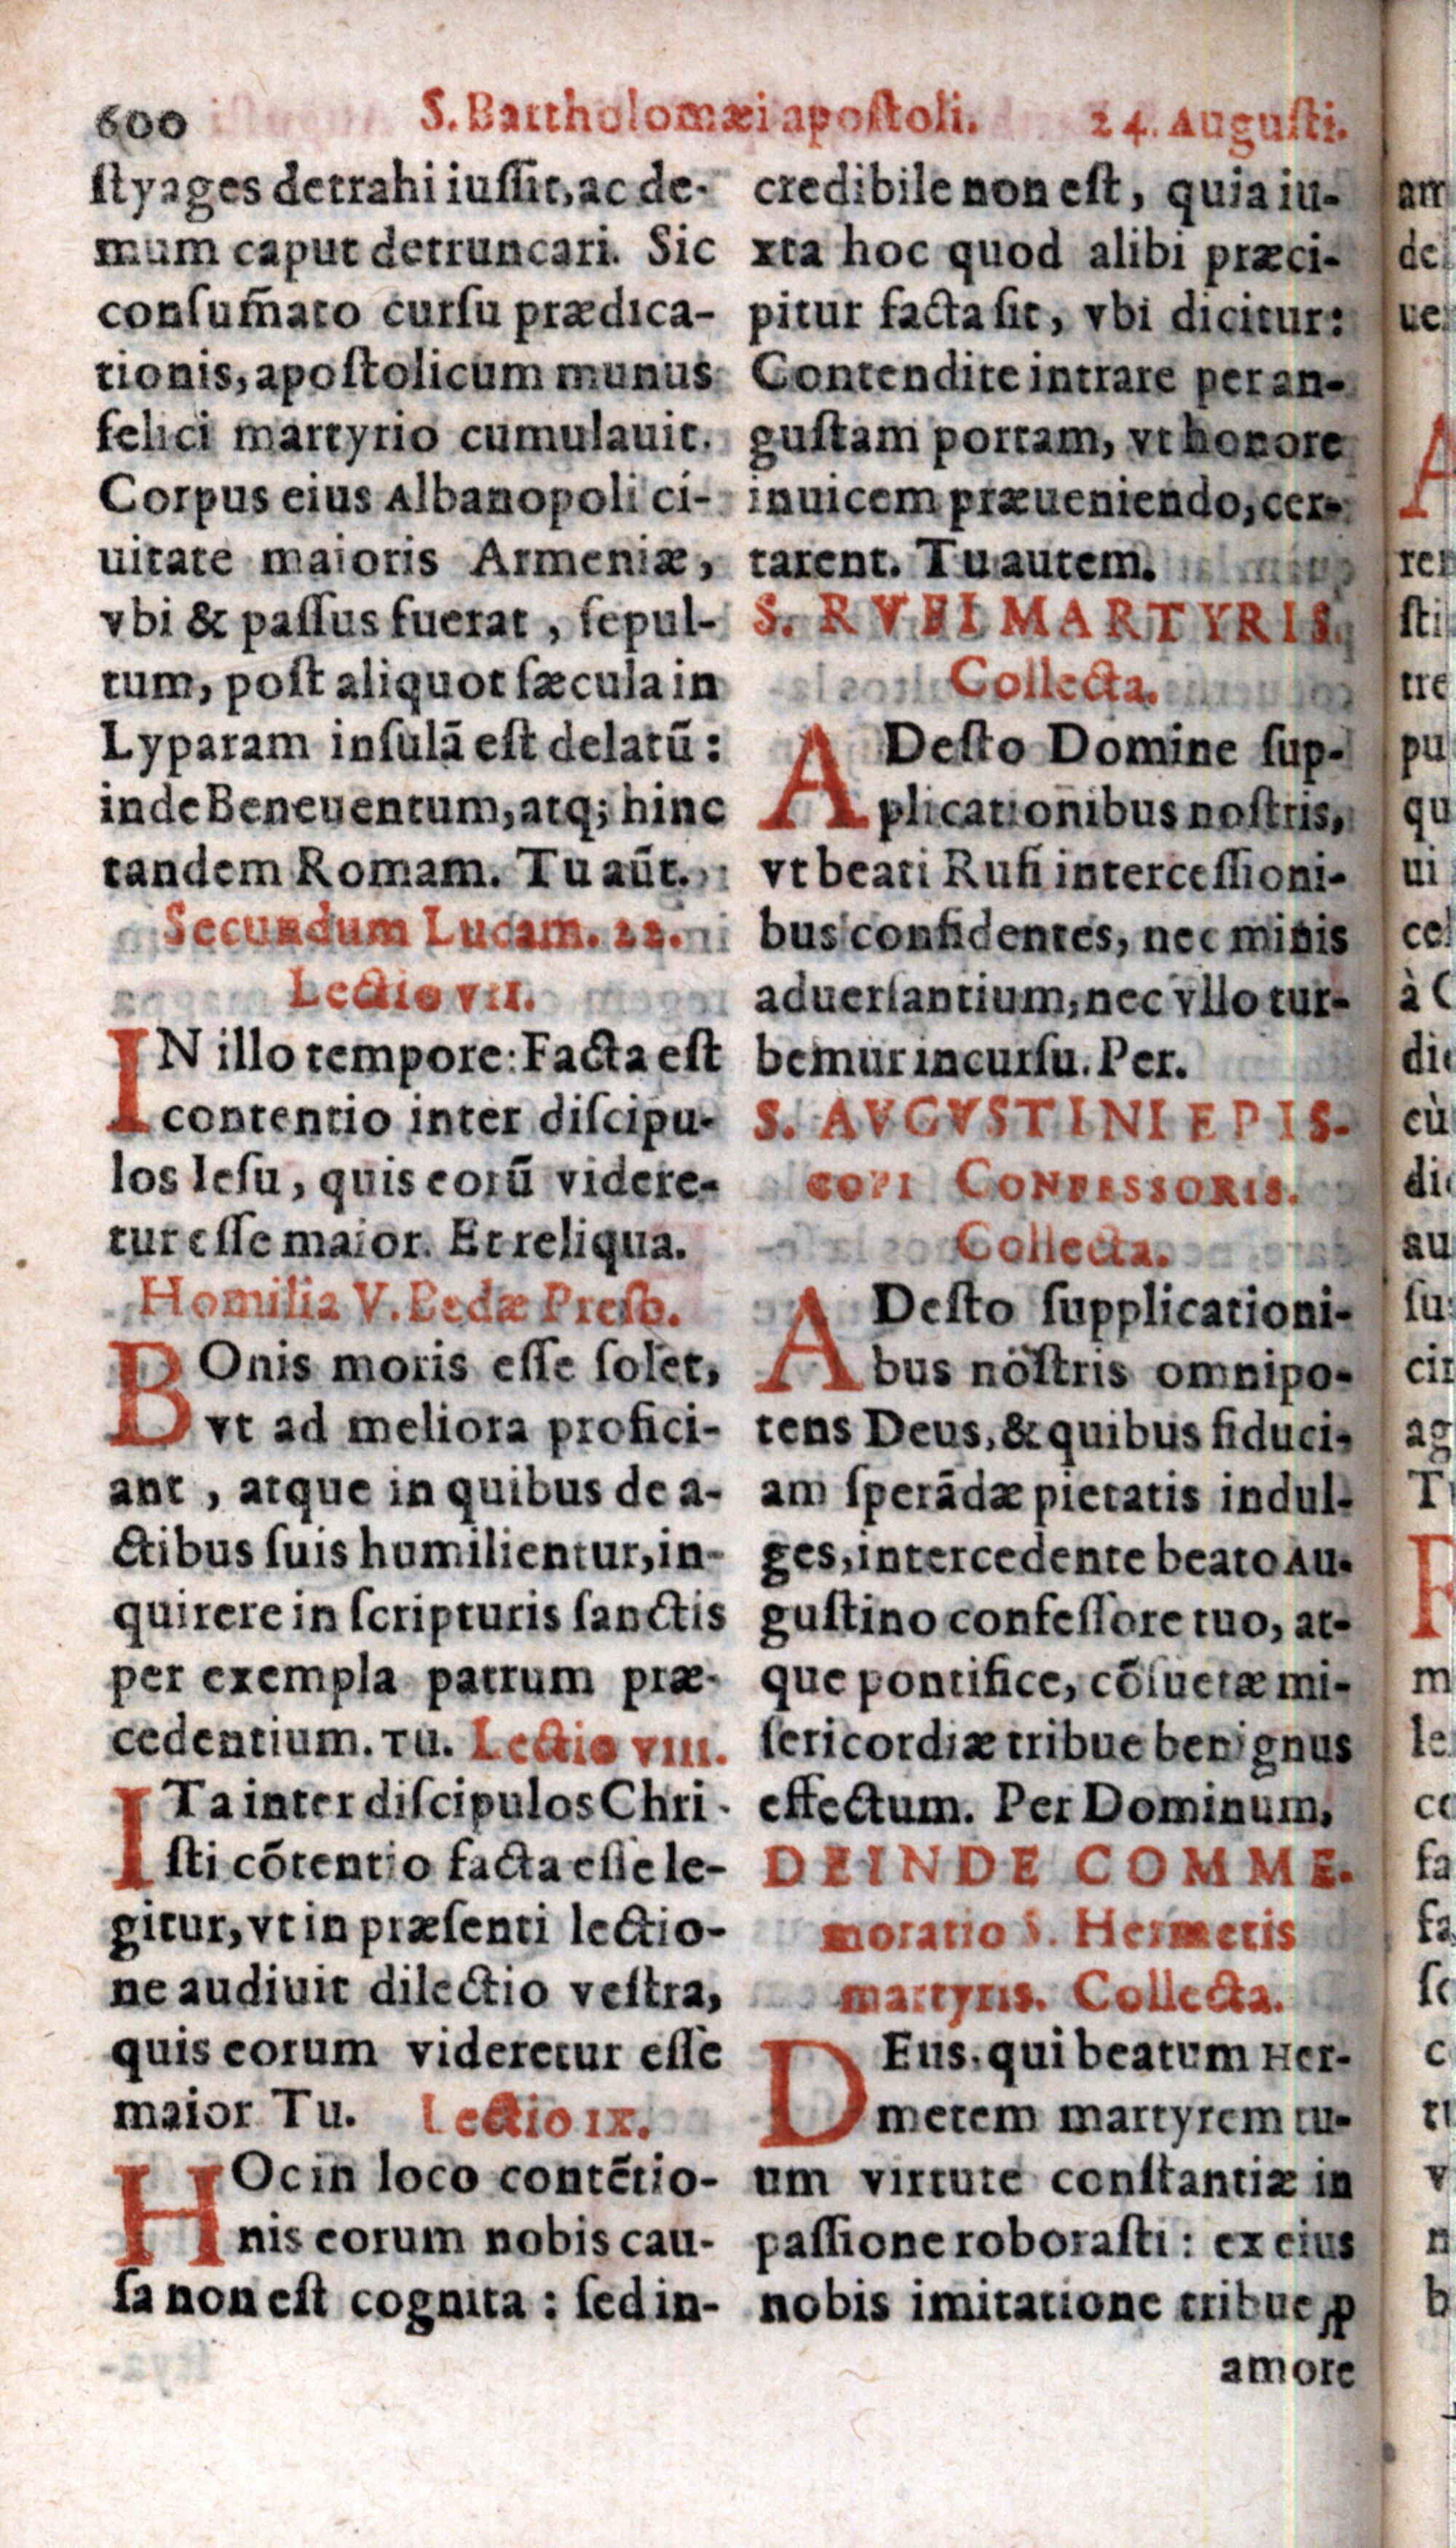 600 S. Bartholomæi apoſtoli. 24. Auguſti.
ſtyages detrahi iuſſit, ac de-
mum caput detruncari. Sic
conſum̃ato curſu prædica-
tionis, apoſtolicum munus
felici martyrio cumulauit.
Corpus eius Albanopoli ci-
uitate maioris Armeniæ,
vbi & paſſus fuerat, ſepul-
tum, poſt aliquot ſæcula in
Lyparam inſulã eſt delatũ:
inde Beneuentum, atq; hinc
tandem Romam. Tu aũt.
Secundum Lucam. 22.
Lectio VII.
IN illo tempore: Facta eſt
contentio inter diſcipu-
los Ieſu, quis eorũ videre-
tur eſſe maior. Et reliqua.
Homilia V. Bedæ Preſb.
BOnis moris eſſe ſolet,
vt ad meliora profici-
ant, atque in quibus de a-
ctibus ſuis humilientur, in-
quirere in ſcripturis ſanctis
per exempla patrum præ-
cedentium. Tu. Lectio VIII.
ITa inter diſcipulos Chri-
ſti cõtentio facta eſſe le-
gitur, vt in præſenti lectio-
ne audiuit dilectio veſtra,
quis eorum videretur eſſe
maior Tu. Lectio IX.
HOc in loco contẽtio-
nis eorum nobis cau-
ſa non eſt cognita: ſed in-
credibile non eſt, quia iu-
xta hoc quod alibi præci-
pitur facta ſit, vbi dicitur:
Contendite intrare per an-
guſtam portam, vt honore
inuicem præueniendo, cer-
tarent. Tu autem.
S. RVFI MARTYRIS.
Collecta.
ADeſto Domine ſup-
plicationibus noſtris,
vt beati Rufi interceſſioni-
bus confidentes, nec minis
aduerſantium, nec vllo tur-
bemur incurſu. Per.
S. AVGVSTINI EPIS-
COPI CONFESSORIS.
Collecta.
ADeſto ſupplicationi-
bus noſtris omnipo-
tens Deus, & quibus fiduci-
am ſperãdæ pietatis indul-
ges, intercedente beato Au-
guſtino confeſſore tuo, at-
que pontifice, cõſuetæ mi-
ſericordiæ tribue benignus
effectum. Per Dominum,
DEINDE COMME-
moratio S. Hermetis
martyris. Collecta.
DEus, qui beatum Her-
metem martyrem tu-
um virtute conſtantiæ in
paſſione roboraſti: ex eius
nobis imitatione tribue ꝓ
amore